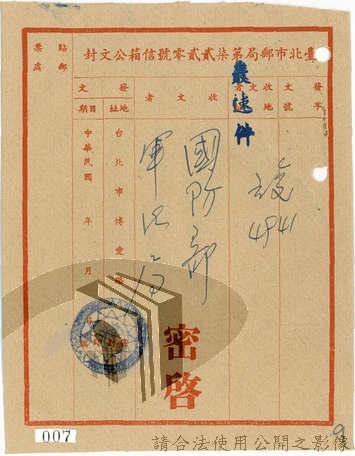 臺北市郵局第柒貳貳零號信箱公文封
貼郵票處
最速件
發文字號
收文者地址
收文者
發文地址
發文日期
4941
國防部
軍法局
台北市博愛路
中華民國 年 月 日
密啓
007
9
請合法使用公開之影像